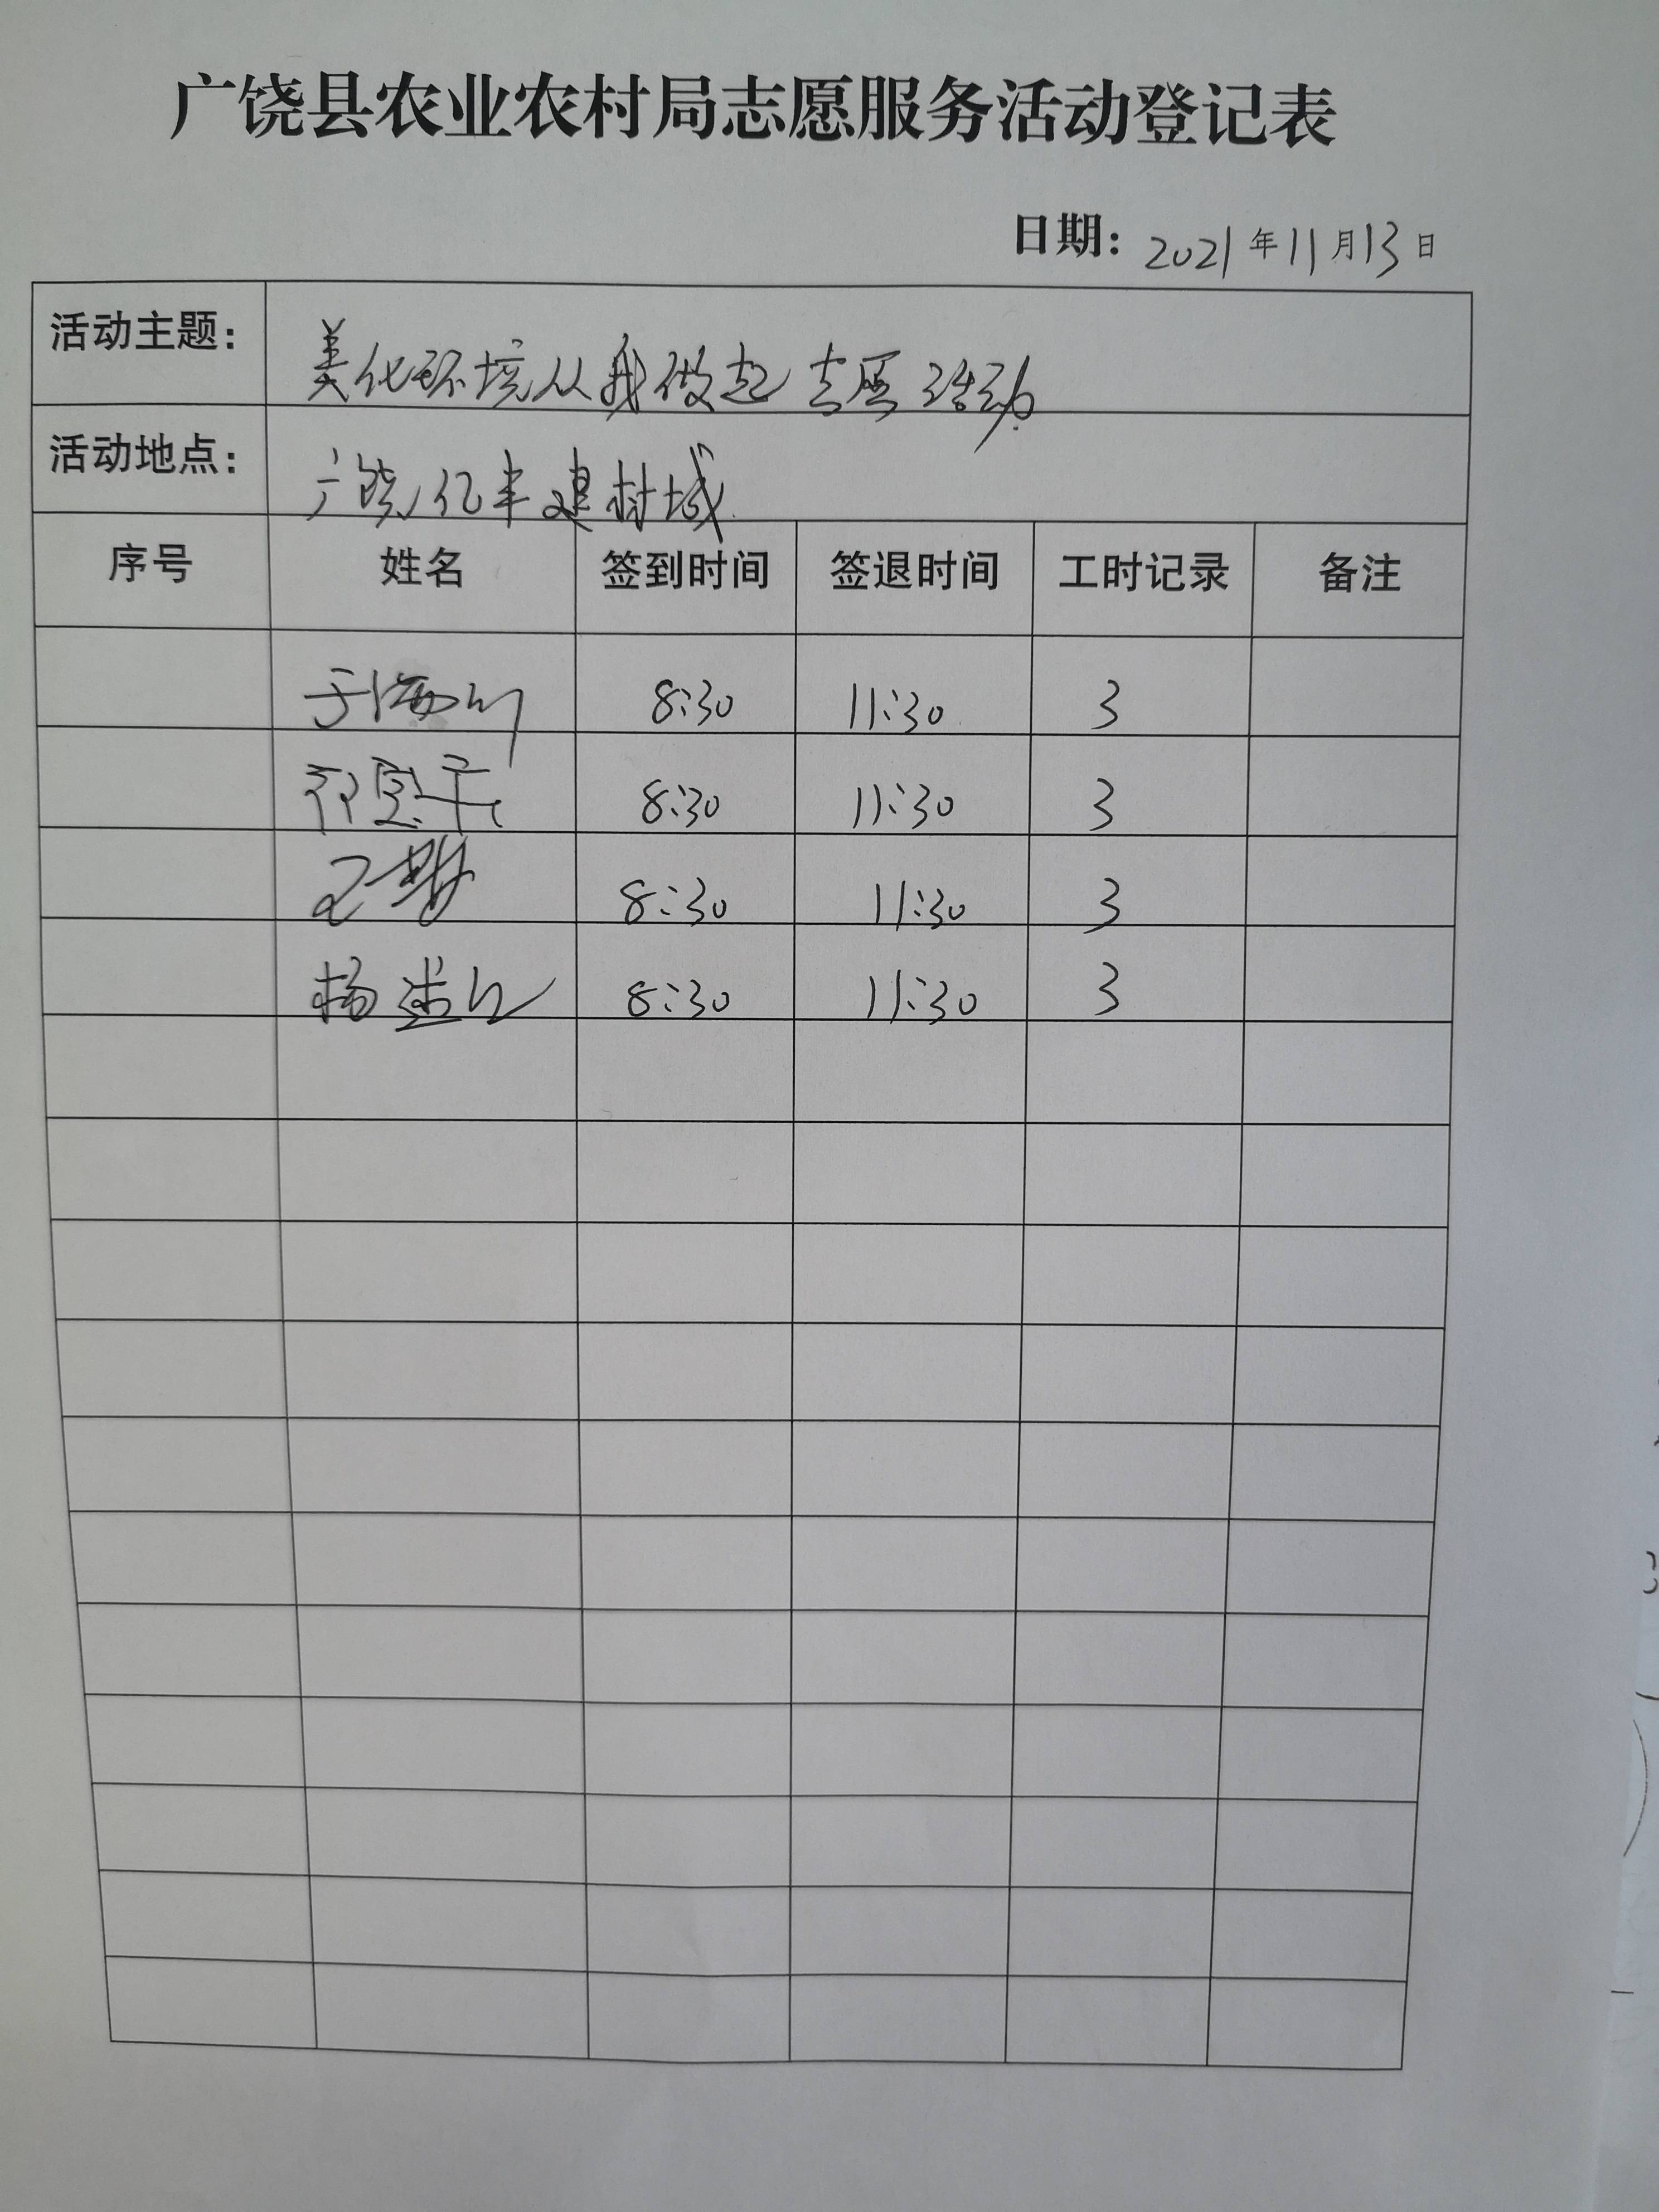 广饶县农业农村局志愿服务活动登记表
日期: 2021年11月13日
活动主题: 美化环境从我做起志愿活动
活动地点: 广饶亿丰建材城
序号 姓名 签到时间 签退时间 工时记录 备注
于海 8:30 11:30 3
8:30 11:30 3
8:30 11:30 3
杨 8:30 11:30 3